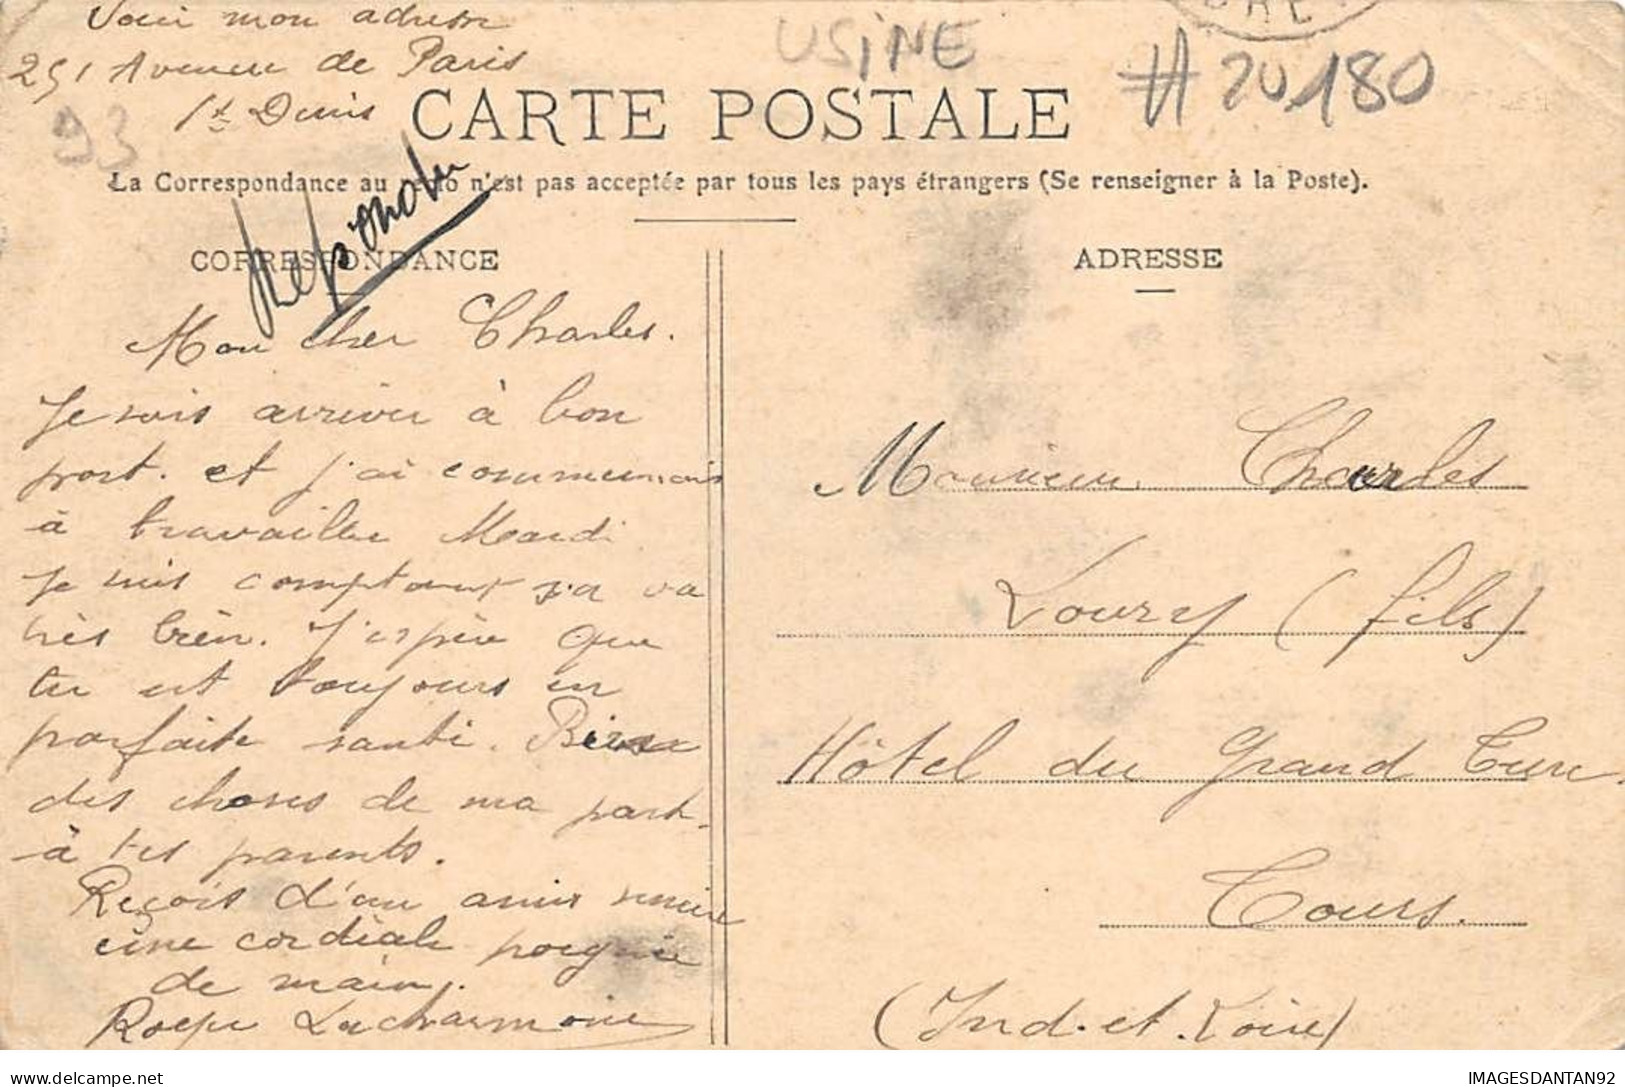 Voici mon adresse
251 Avenue de Paris
St Denis
93
USINE
#20180
CARTE POSTALE
La Correspondance au recto n'est pas acceptée par tous les pays étrangers (Se renseigner à la Poste).
Repondu
CORRESPONDANCE
Mon cher Charles.
Je suis arriver à bon
port. et j'ai commencais
à travailler Mardi
Je suis comptant sa va
très bien. J'espère que
tu est toujours en
parfaite santé. Bien
des choses de ma part
à tes parents.
Reçois d'un amis
une cordiale poignée
de main.
Lacharmoise
ADRESSE
Monsieur Charles
Loury (fils)
Hôtel du Grand Turc
Tours.
(Ind. et. Loire)
IMAGESDANTAN92
delcampe.net